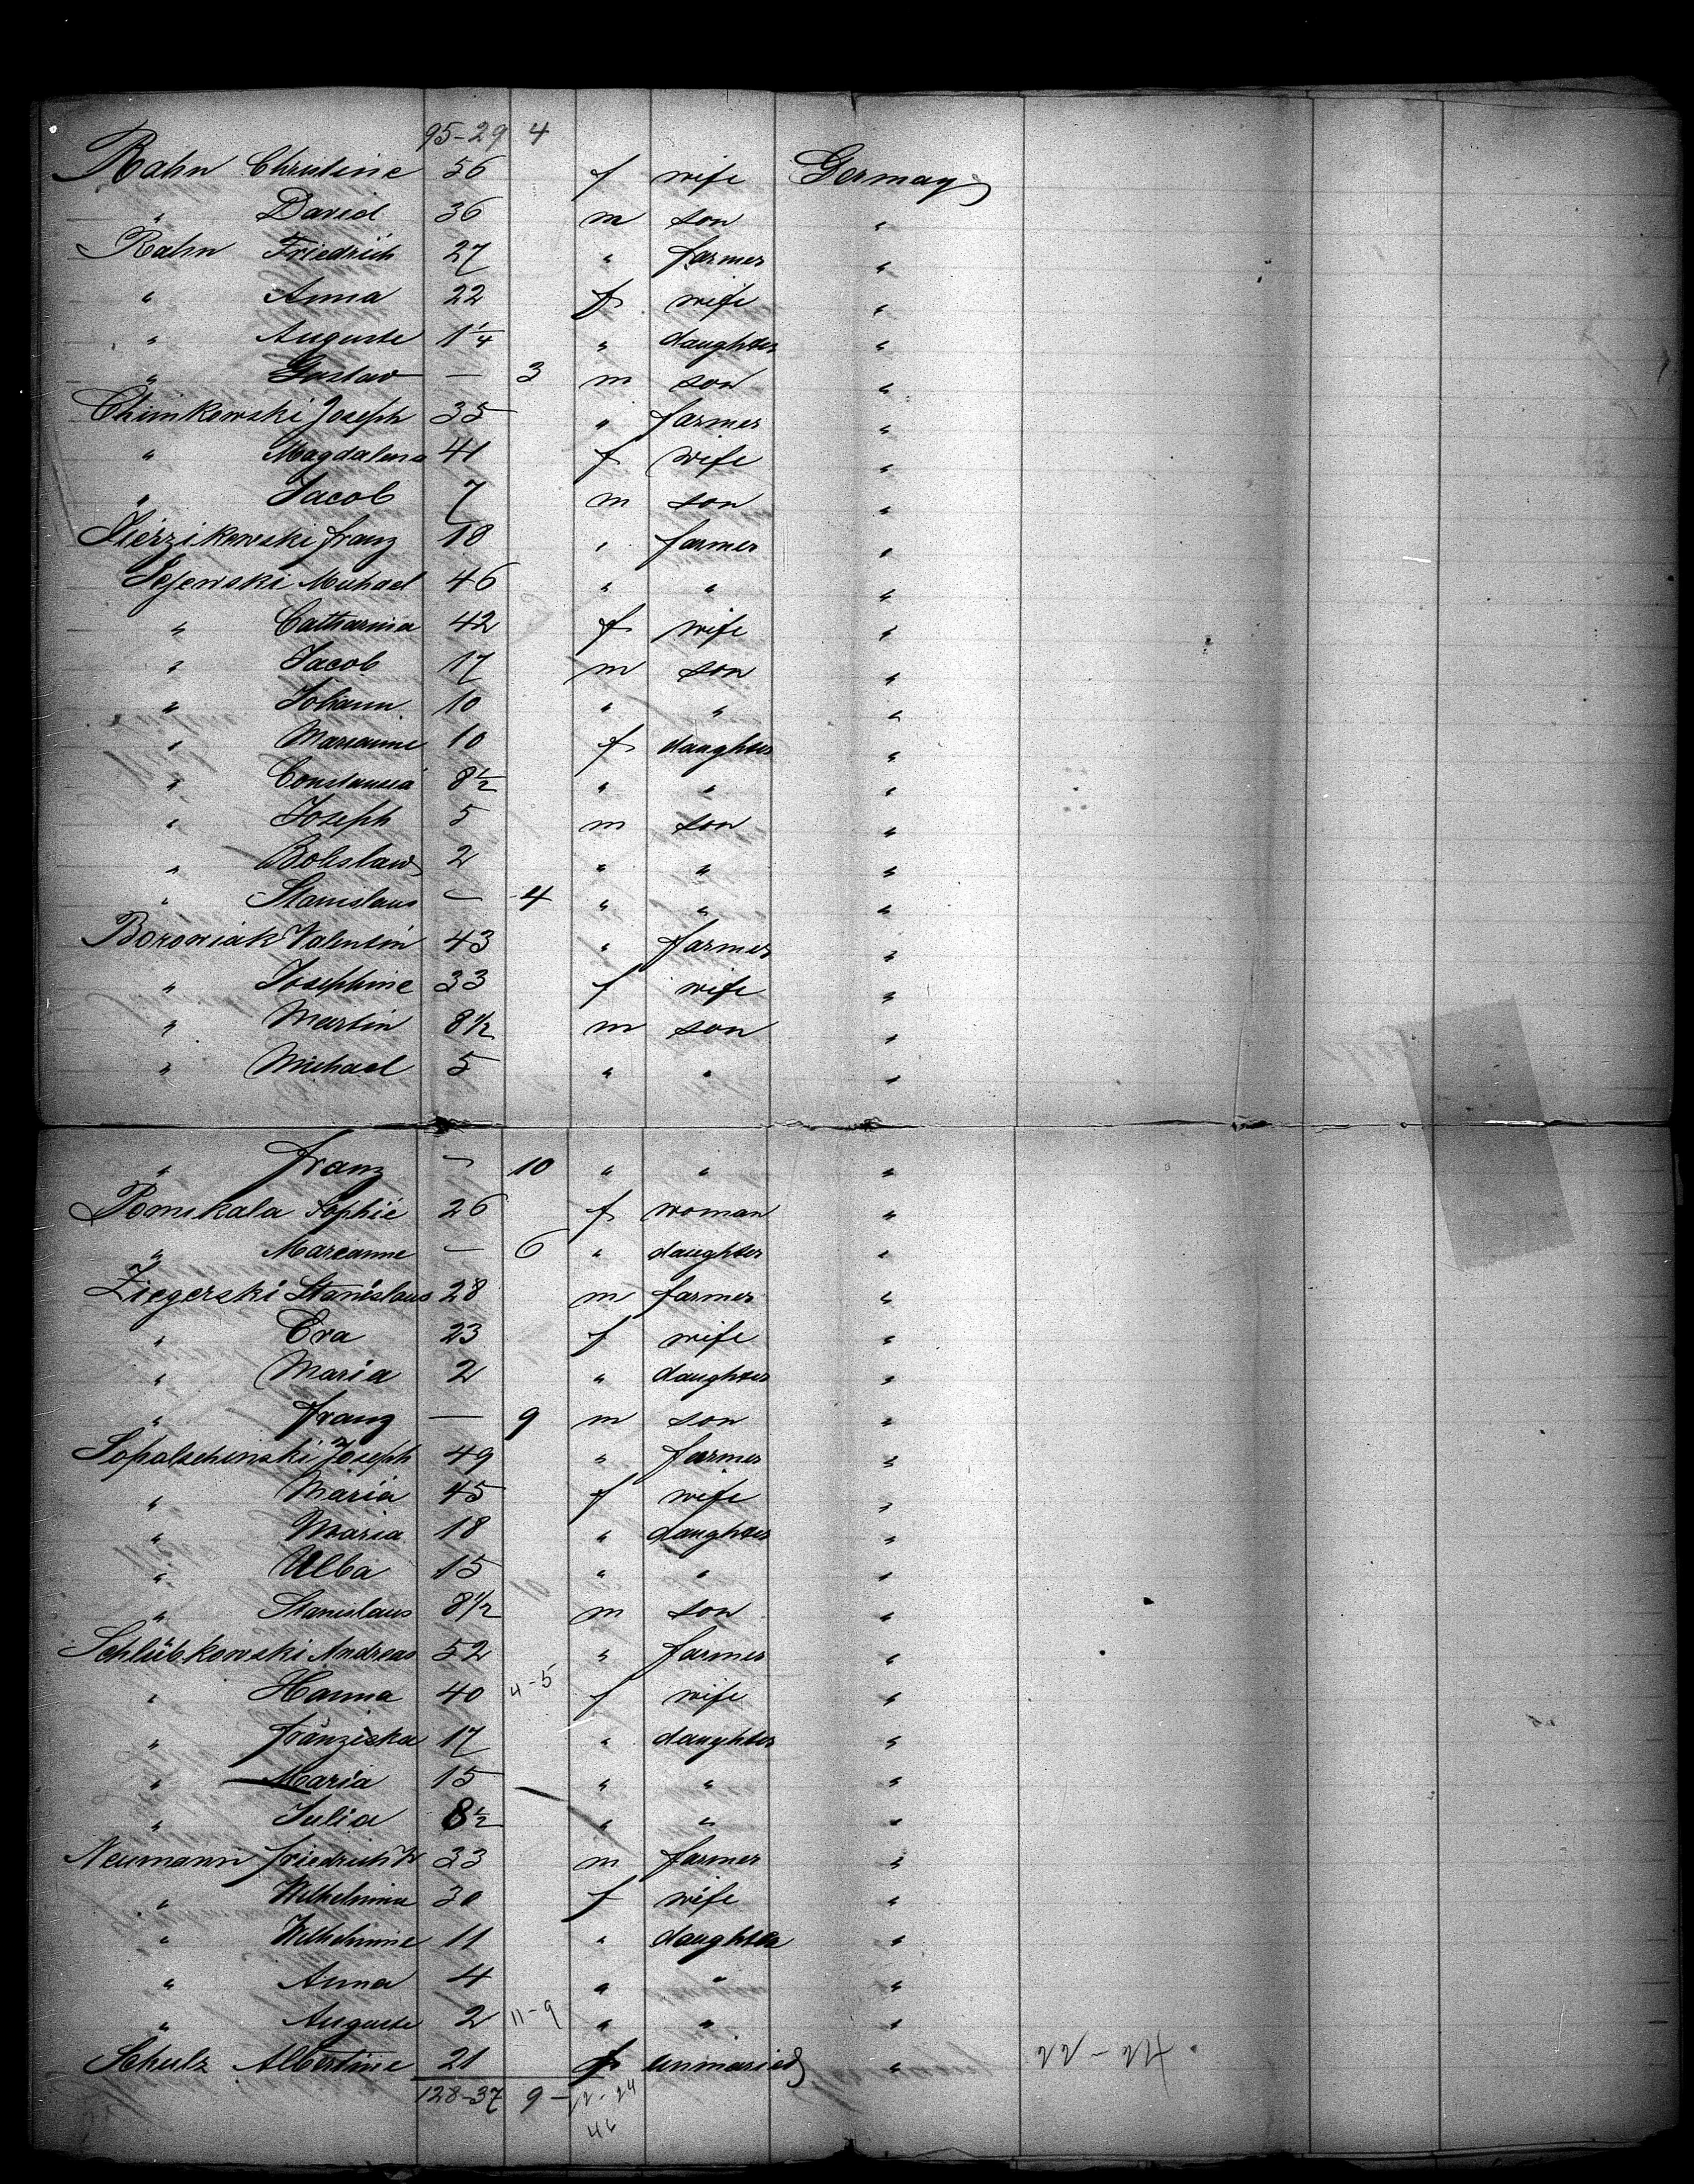 95-29 4
Rahn Christine 56 f wife Germany
" David 36 m son "
Rahn Friedrich 27 " farmer "
" Anna 22 f wife "
" Auguste 1 1/4 " daughter "
" Gustav — 3 m son "
Chimkowski Joseph 35 " farmer "
" Magdalena 41 f wife "
" Jacob 7 m son "
Sierzikowski Franz 18 " farmer "
Michael 46 " " "
" Catharina 42 f wife "
" Jacob 17 m son "
" Johann 10 " " "
" Marianne 10 f daughter "
" Constansia 8 1/2 " " "
" Joseph 5 m son "
" Boleslaw 2 " " "
" Stanislaus — 4 " " "
Borowiak Valentin 43 " farmer "
" Josephine 33 f wife "
" Martin 8 1/2 m son "
" Michael 5 " " "
" Franz — 10 " " "
Pomikala Sophie 26 f woman "
" Marianne — 6 " daughter "
Ziegerski Stanislaus 28 m farmer "
" Eva 23 f wife "
" Maria 2 " daughter "
" Franz — 9 m son "
Sopalschinski Joseph 49 " farmer "
" Maria 45 f wife "
" Maria 18 " daughter "
" Alba 15 " " "
" Stanislaus 8 1/2 m son "
Schlübkowski Andreas 52 " farmer "
" Hanna 40 4-5 f wife "
" Franziska 17 " daughter "
" Maria 15 " " "
" Julia 8 1/2 " " "
Neumann Friedrich W 33 m farmer "
" Wilhelmina 30 f wife "
" Wilhelmine 11 " daughter "
" Anna 4 " " "
" Auguste 2 11-9 " " "
Schulz Albertine 21 f unmaried " 22-24
128-37 9 - 22-24
46